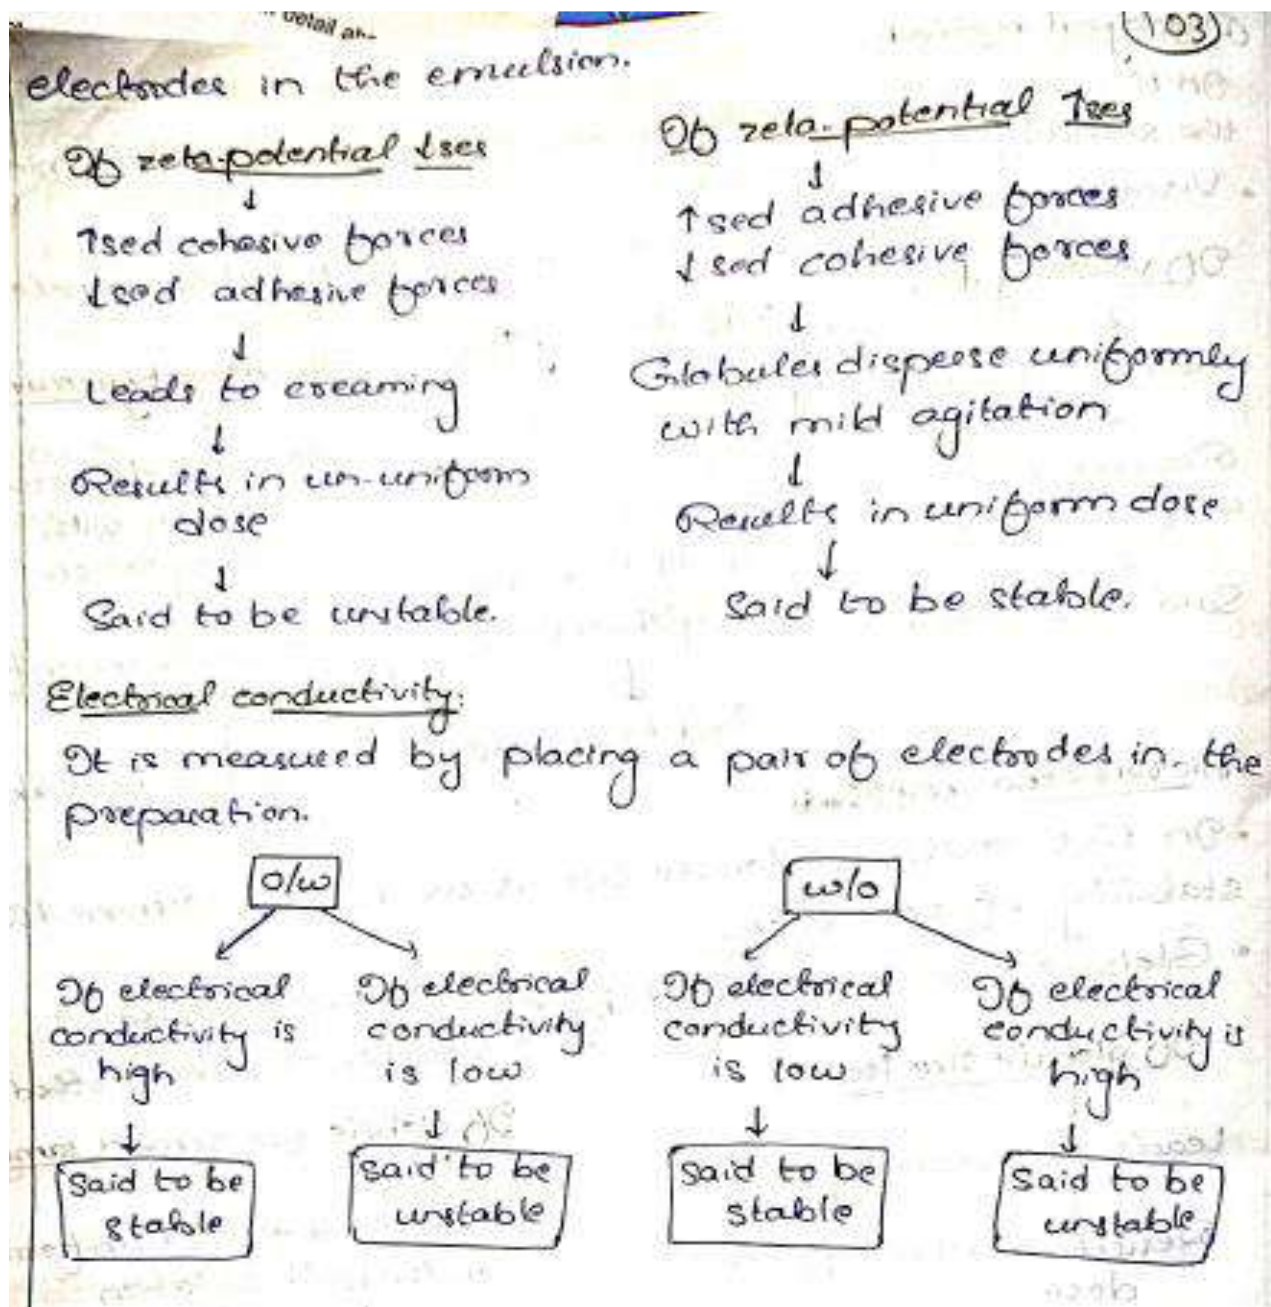 detail
103
electrodes in the emulsion.
If zeta-potential ↓ses
↓
↑sed cohesive forces
↓sed adhesive forces
↓
Leads to creaming
↓
Results in un-uniform
dose
↓
Said to be unstable.
If zeta-potential ↑ses
↓
↑sed adhesive forces
↓sed cohesive forces
↓
Globules disperse uniformly
with mild agitation
↓
Results in uniform dose
↓
Said to be stable.
Electrical conductivity:
It is measured by placing a pair of electrodes in the
preparation.
o/w
If electrical
conductivity is
high
↓
Said to be
stable
If electrical
conductivity
is low
↓
Said to be
unstable
w/o
If electrical
conductivity
is low
↓
Said to be
stable
If electrical
conductivity is
high
↓
Said to be
unstable